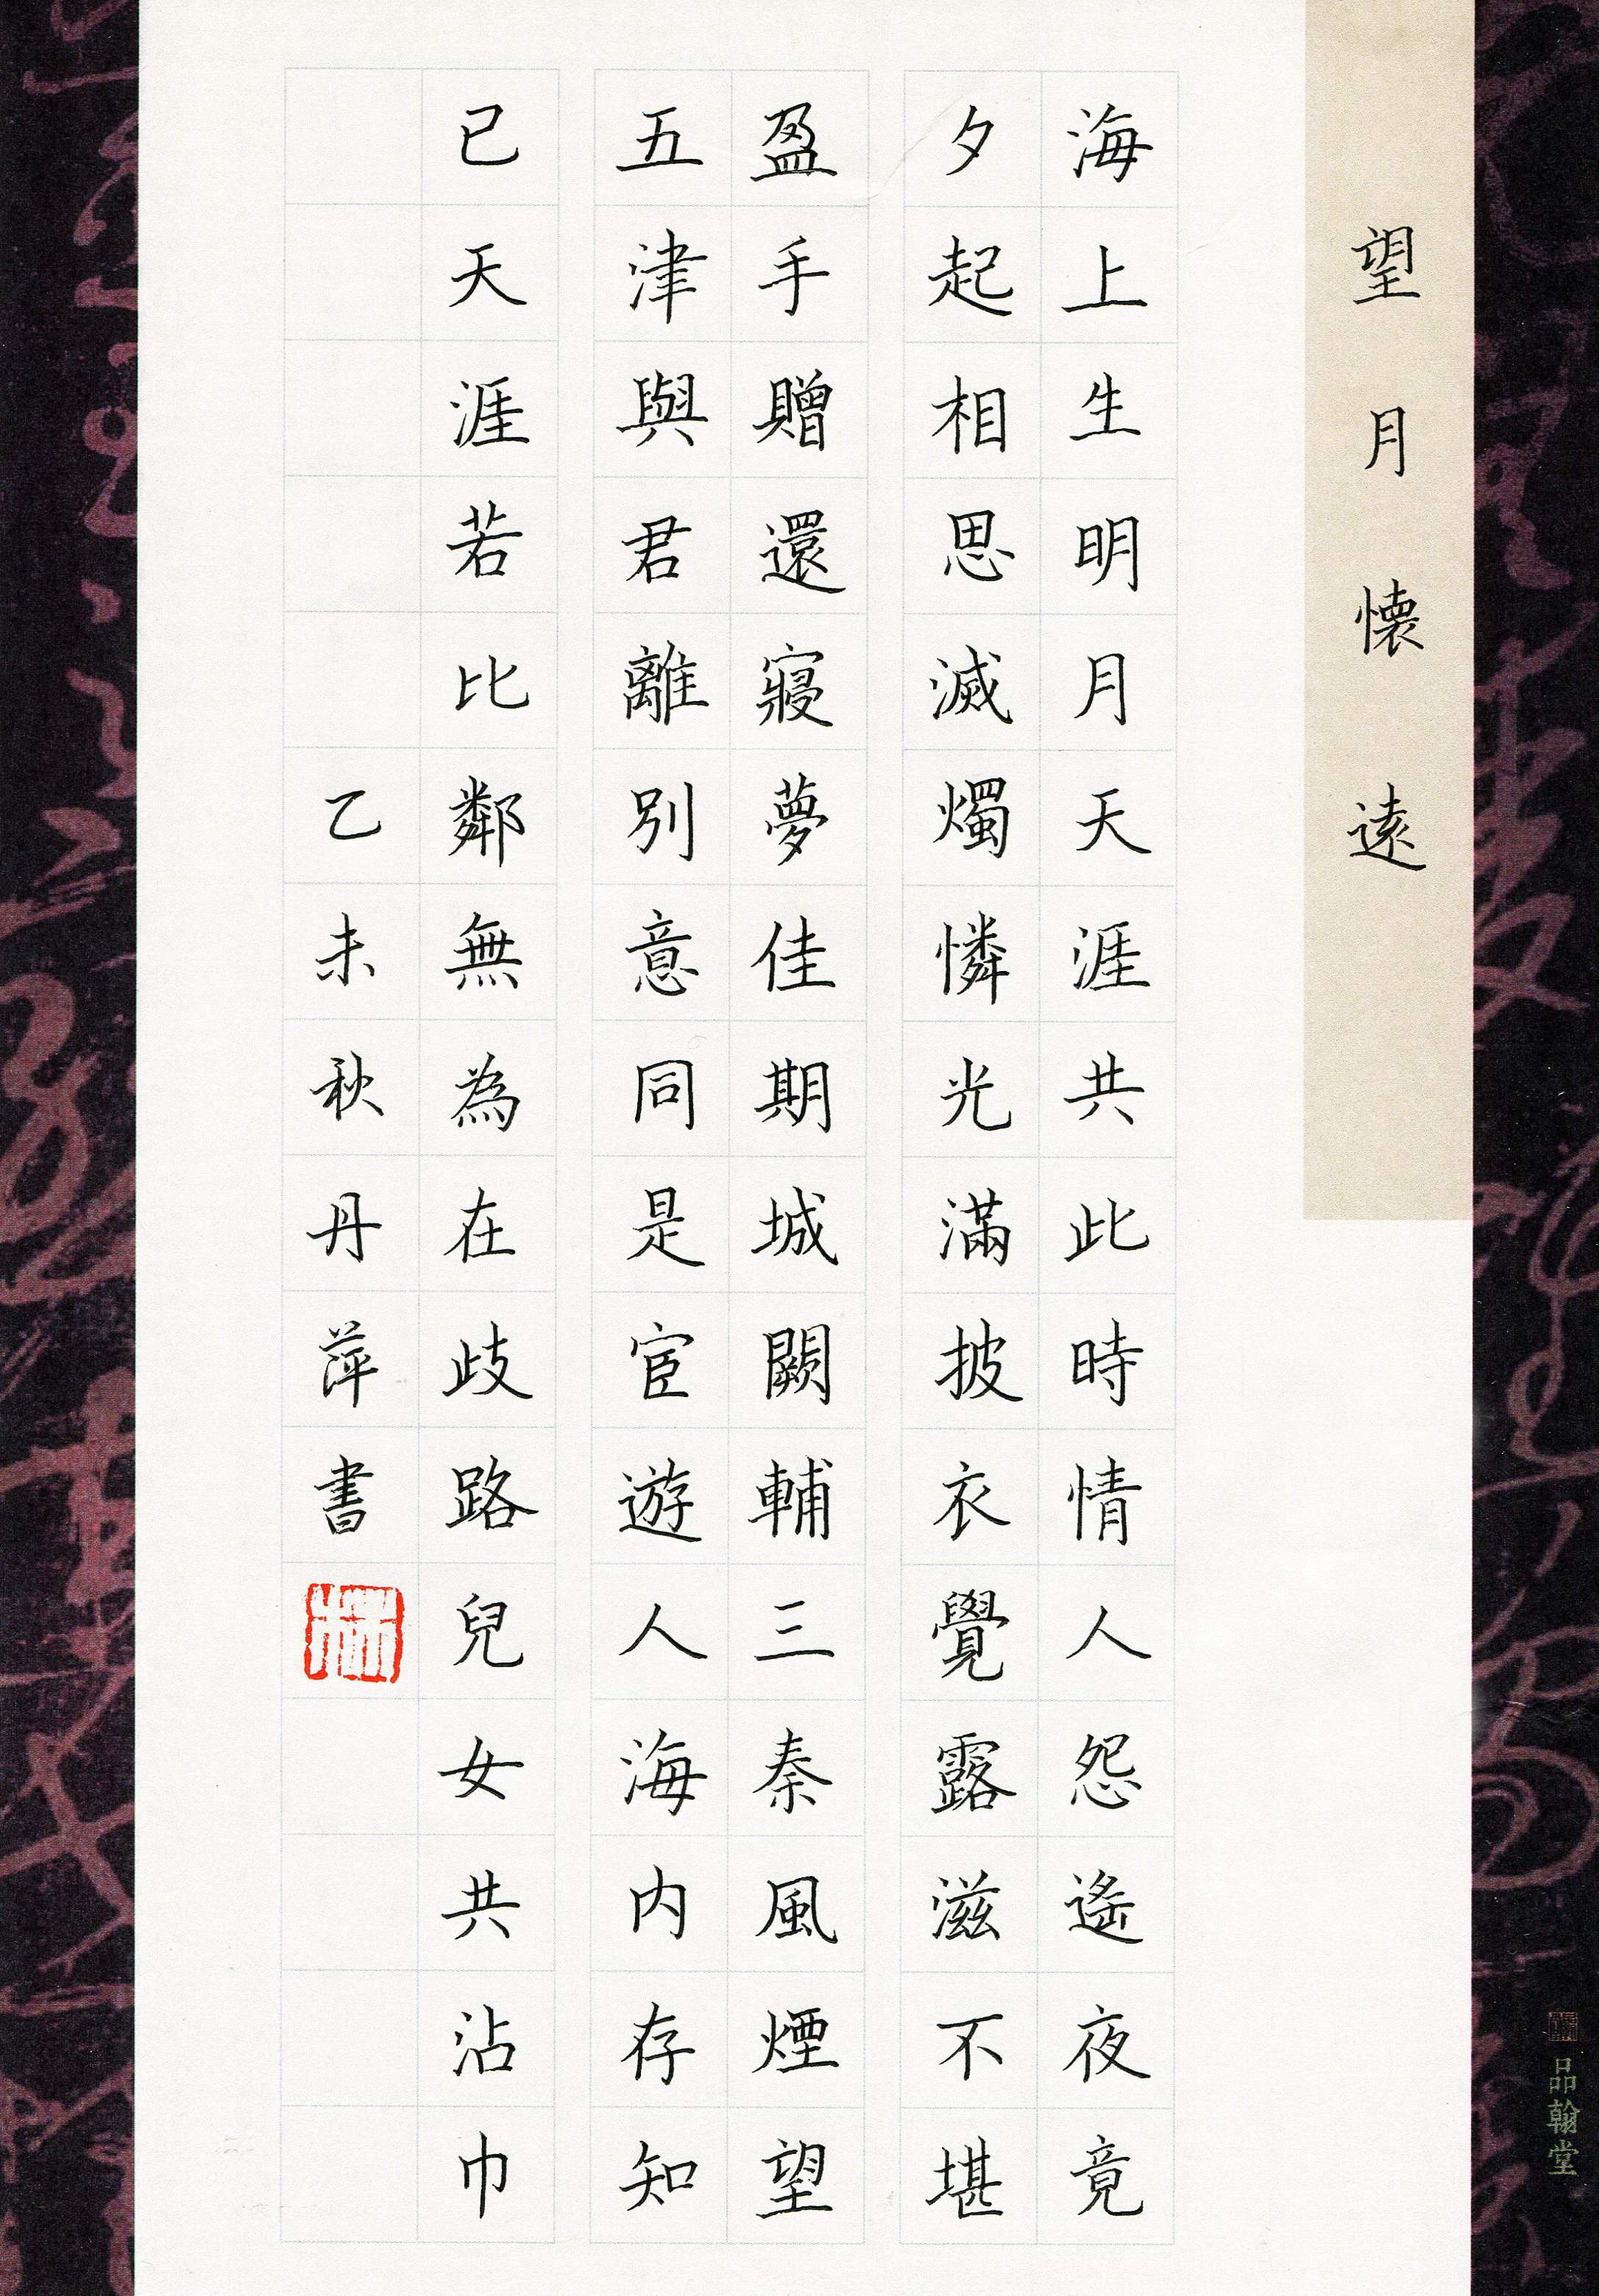 望月懷遠
海上生明月天涯共此時情人怨遙夜竟
夕起相思滅燭憐光滿披衣覺露滋不堪
盈手贈還寢夢佳期城闕輔三秦風煙望
五津與君離別意同是宦遊人海内存知
已天涯若比鄰無為在歧路兒女共沾巾
乙未秋丹萍書
品翰堂